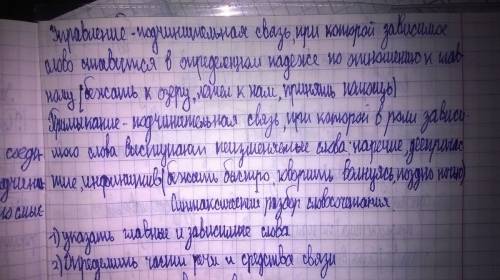 Управление - подчинительная связь, при которой зависимое
слово ставится в определенном падеже по отношению к глав-
ному (бежать к озеру, к нам, принять помощь)
Примыкание - подчинительная связь, при которой в роли зависи-
мого слова выступают неизменяемые слова: наречие, дееприча-
стие, инфинитив (бежать быстро, говорить волнуясь, поздно ночью)
Синтаксический разбор словосочетания
1) указать главные и зависимые слова
2) Определить части речи и средства связи